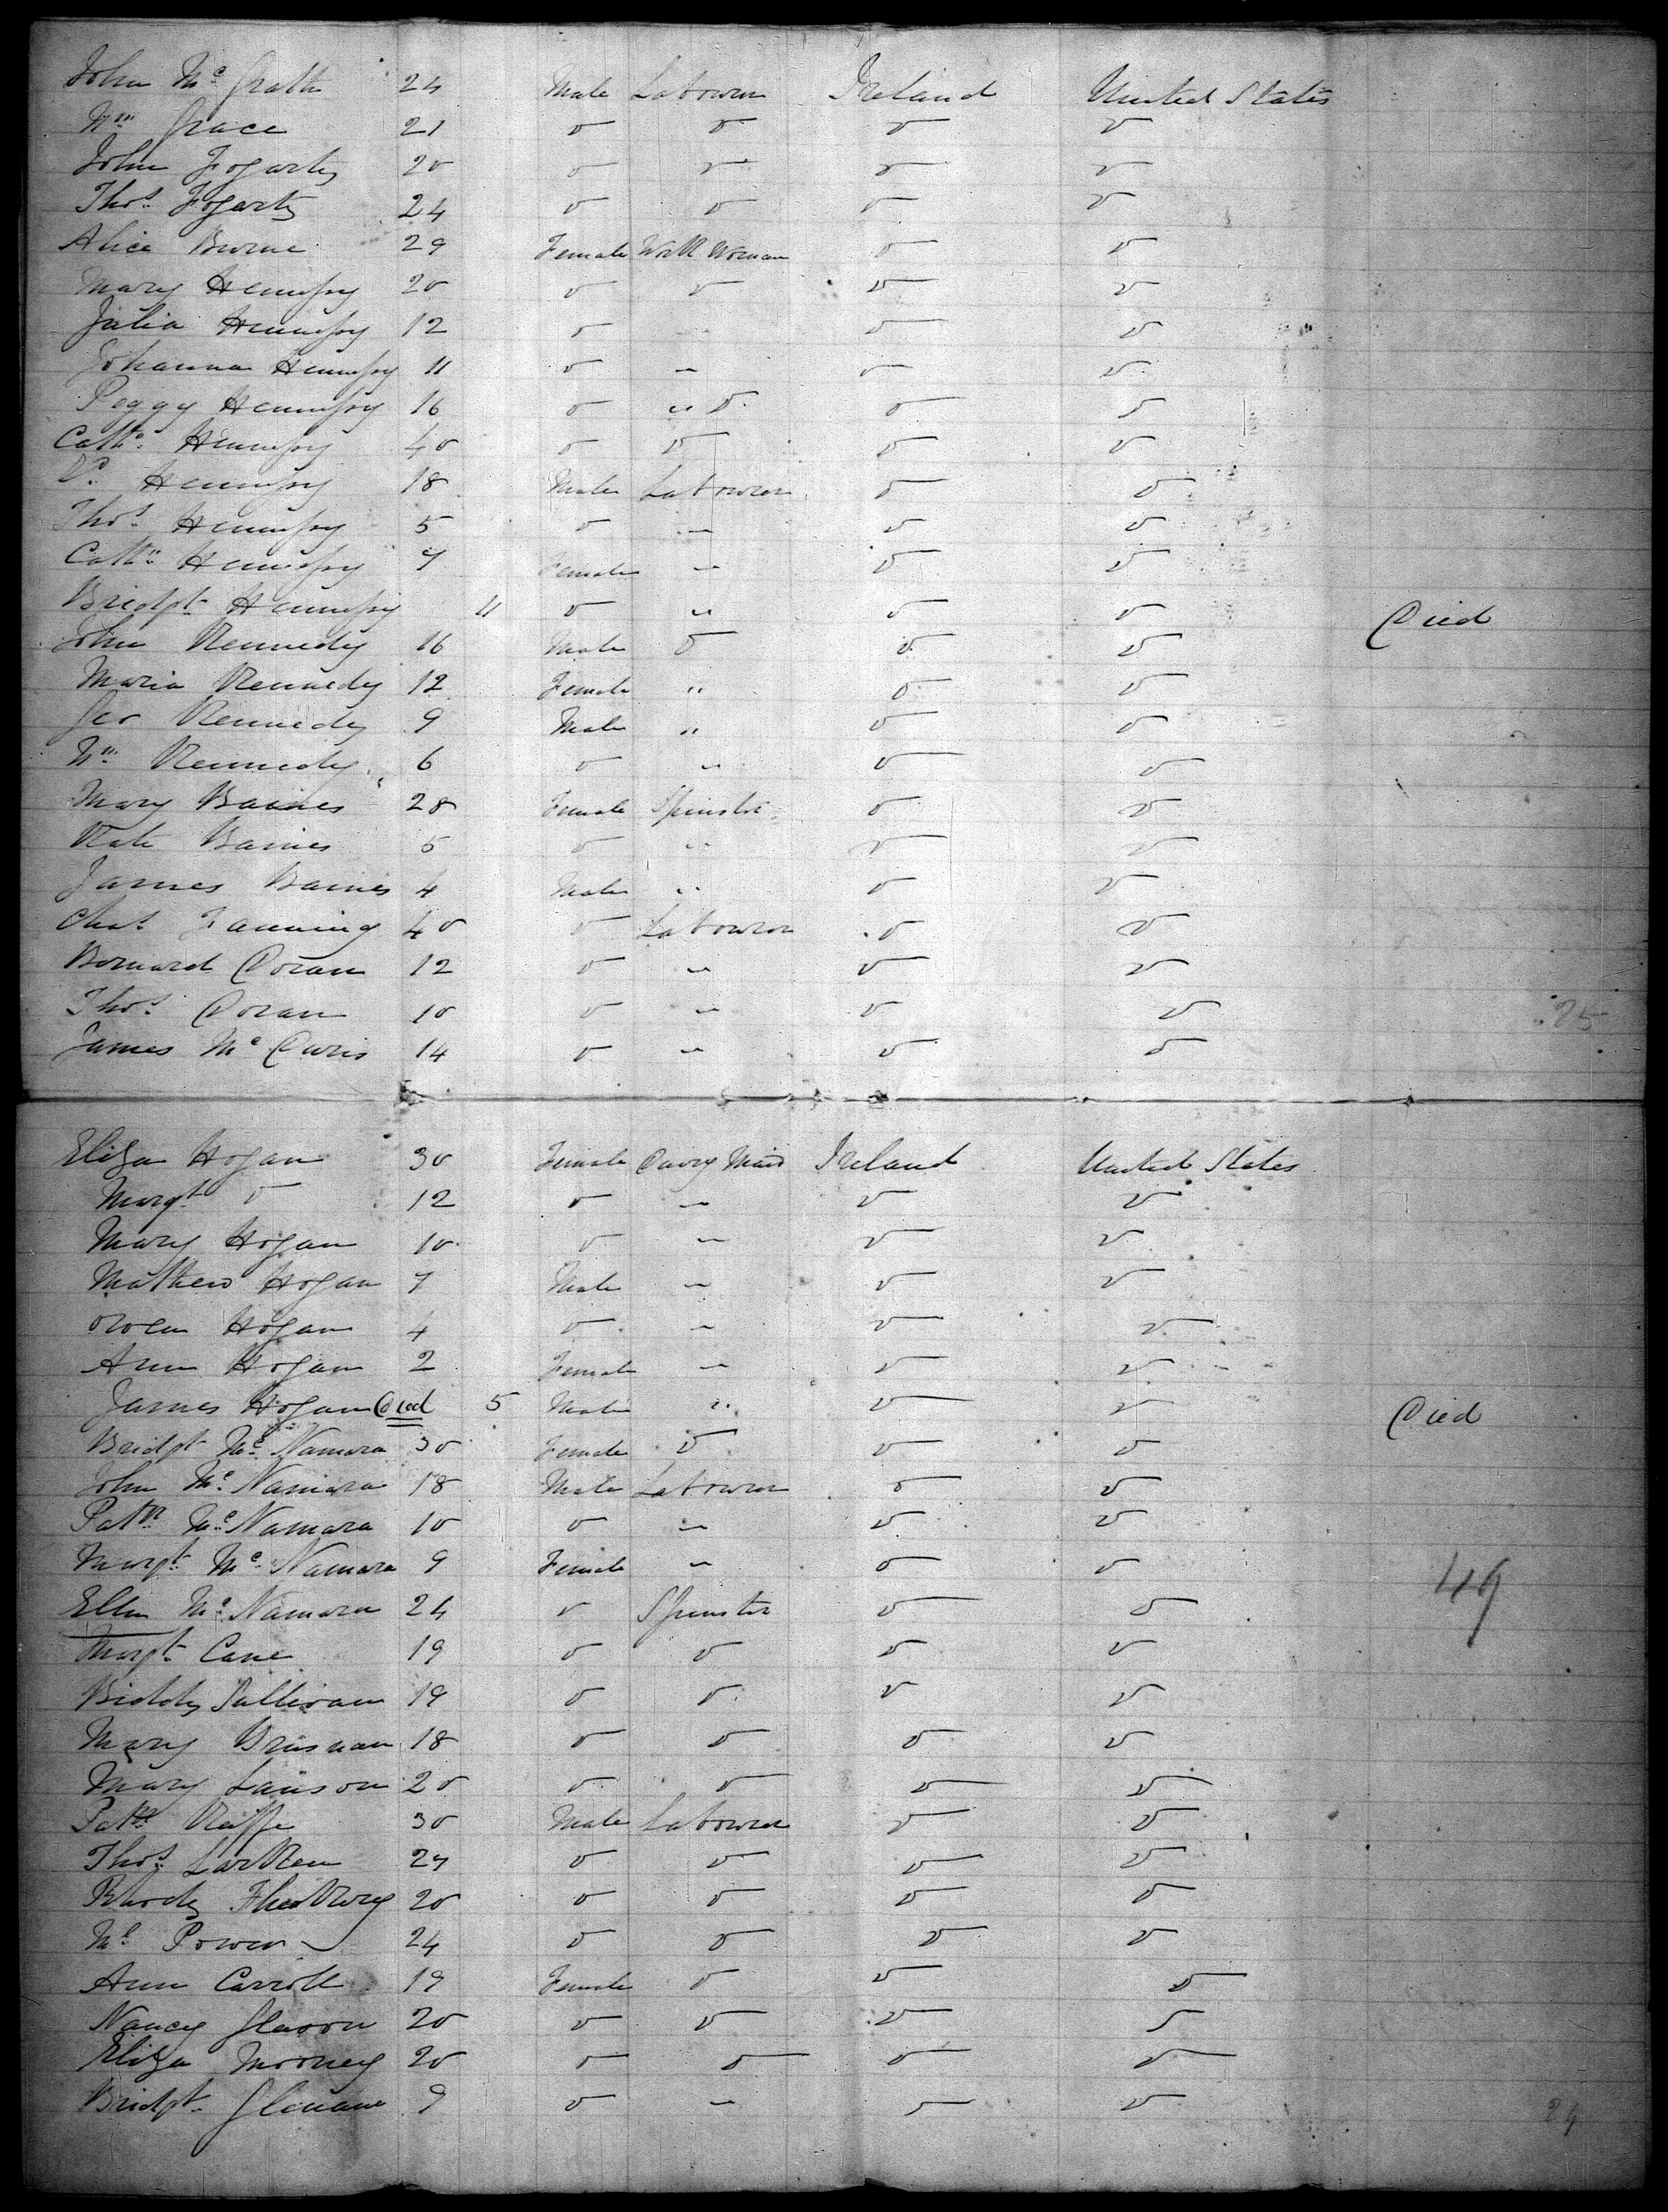 John McGrath 24 Male Labourer Ireland United States
Wm Grace 21 " " " "
John Fogarty 20 " " " "
Thos. Fogarty 24 " " " "
Alice Burne 29 Female Work Woman " "
Mary Hennesy 20 " " " "
Julia Hennesy 12 " " " "
Johanna Hennesy 11 " " " "
Peggy Hennesy 16 " " " "
Cathe. Hennesy 40 " " " "
Hennesy 18 Male Labourer " "
Thos. Hennesy 5 " " " "
Cathn. Hennesy 7 Female " " "
Bridgt. Hennesy 11 " " " " Died
John Kennedy 16 Male " " "
Maria Kennedy 12 Female " " "
Geo Kennedy 9 Male " " "
Wm Kennedy 6 " " " "
Mary Baines 28 Female Spinster " "
Kate Baines 5 " " " "
James Baines 4 Male " " "
Chas. Fanning 40 " Labourer " "
Bernard Doran 12 " " " "
Thos. Doran 10 " " " "
25
James Mc 14 " " " "
Eliza Hogan 30 Female Dairy Maid Ireland United States
Margt. " 12 " " " "
Mary Hogan 10 " " " "
Mathew Hogan 7 Male " " "
Owen Hogan 4 " " " "
Ann Hogan 2 Female " " "
James Hogan Died 5 Male " " " Died
Bridgt. McNamara 30 Female " " "
John McNamara 18 Male Labourer " "
Patk. McNamara 10 " " " "
Margt. McNamara 9 Female " " "
49
Ellen McNamara 24 " Spinster " "
Margt. Cane 19 " " " "
Biddy Sullivan 19 " " " "
Mary Brusnan 18 " " " "
Mary Lawson 20 " " " "
Patk. 30 Male Labourer " "
Thos. Larken 27 " " " "
20 " " " "
Power 24 " " " "
Ann Carroll 19 Female " " "
Nancy Glason 20 " " " "
Eliza Mooney 20 " " " "
Bridgt. Glenane 9 " " " "
24